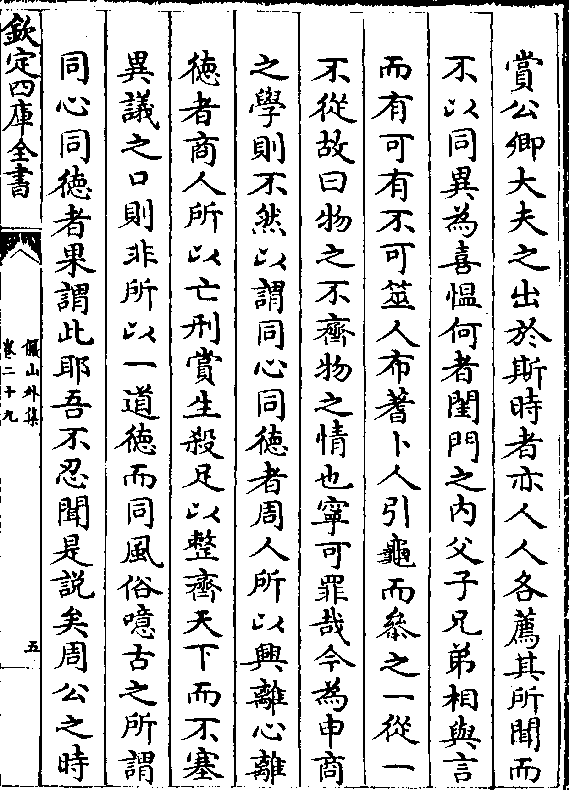 賞公卿大夫之出於斯時者亦人人各薦其所聞而
不以同異為喜愠何者閨門之内父子兄弟相與言
而有可有不可筮人布蓍卜人引龜而叅之一從一
不從故曰物之不齊物之情也寧可罪哉今為申商
之學則不然以謂同心同徳者周人所以興離心離
徳者商人所以亡刑賞生殺足以整齊天下而不塞
異議之口則非所以一道徳而同風俗噫古之所謂
同心同徳者果謂此耶吾不忍聞是説矣周公之時
欽定四庫全書
儼山外集
卷二十九
五